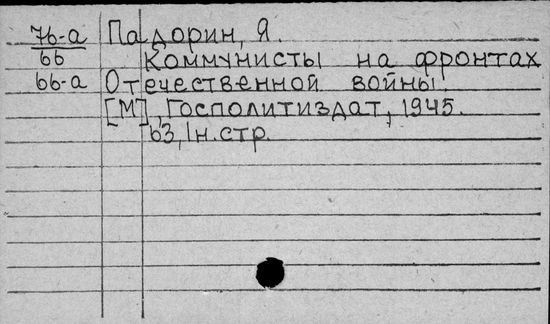 76-а Падорин, Я.
66 Коммунисты на фронтах
66-а Отечественной войны.
[М], Госполитиздат, 1945.
63, 1н.стр.